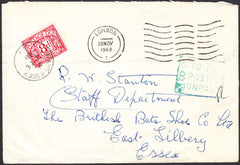 LONDON
28 NOV
1968
R. W. Stanton
Staff Department
The British Bata Shoe Co. Ltd
East Tilbury
Essex